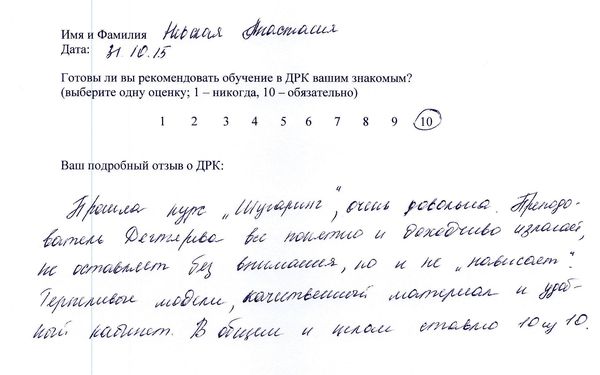 Имя и Фамилия Анастасия
Дата: 31.10.15
Готовы ли вы рекомендовать обучение в ДРК вашим знакомым?
(выберите одну оценку; 1 – никогда, 10 – обязательно)
1 2 3 4 5 6 7 8 9 10
Ваш подробный отзыв о ДРК:
Прошла курс „Шугаринг", очень довольна. Преподо-
ватель Дегтярева все понятно и доходчиво излагает,
не оставляет без внимания, но и не „нависает".
Терпеливые модели, качественный материал и удоб-
ный кабинет. В общем и целом ставлю 10 из 10.